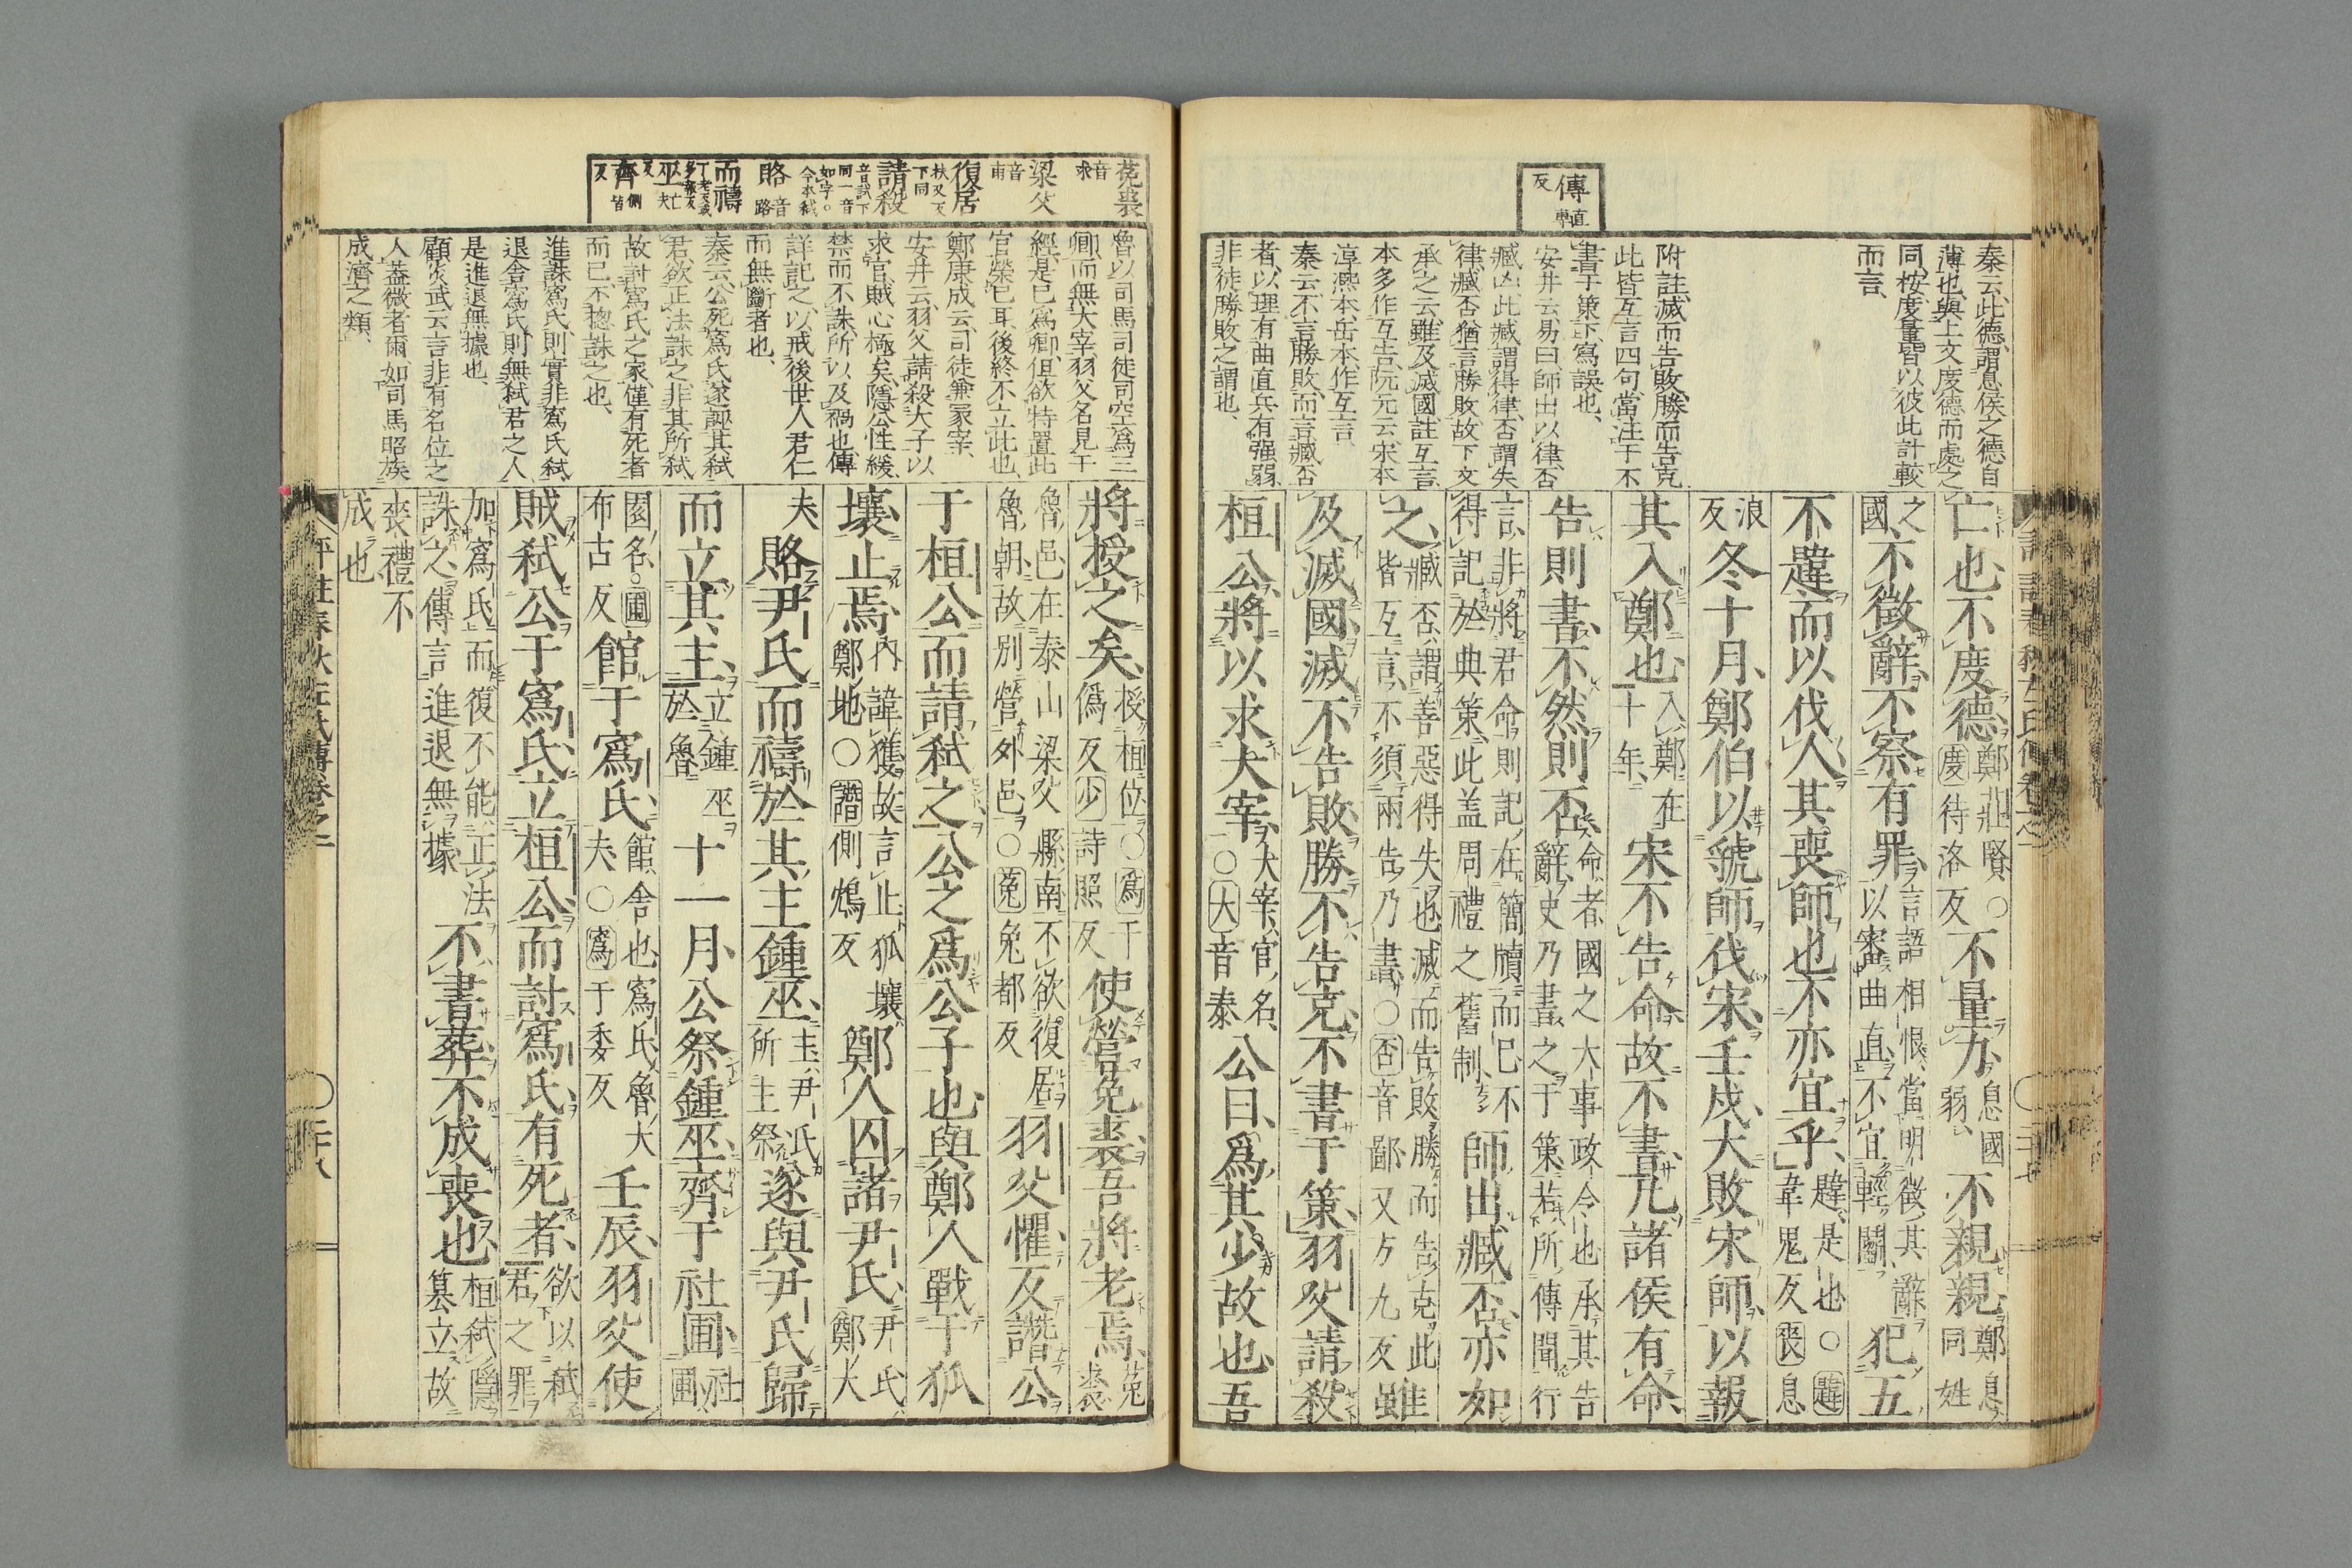 傳直專反
秦云、此德、謂息侯之德、自
薄也、與上文度德而處之
同、桉度量皆以彼此計較
而言、
附註、滅而告敗、勝而告克、
此皆互言四句、當注于不
書于策下、寫誤也、
安井云、易曰、師出以律、否
臧凶、此臧謂得律、否謂失
律、臧否猶言勝敗、故下文
承之云、雖及滅國、註互言、
本多作互告、阮元云、宋本
淳熙本、岳本、作互言、
秦云、不言勝敗、而言臧否
者、以理有曲直、兵有强弱、
非徒勝敗之謂也、
亡也、不度德、鄭莊賢、○度待洛反不量力、息國弱、不親親、鄭息同姓
之國、不徵辭、不察有罪、言語相恨、當明徵其辭以審曲直、不宜輕鬭、犯五
不韙、而以伐人、其喪師也、不亦宜乎、韙、是也、○韙韋鬼反喪息
浪反冬十月、鄭伯以虢師伐宋、壬戌、大敗宋師、以報
其入鄭也、入鄭在十年、宋不告命、故不書、凡諸侯有命、
告則書、不然則否、命者、國之大事政令也、承其告辭、史乃書之于策、若所傳聞行
言、非將君命、則記在簡牘而已、不得記於典策、此蓋周禮之舊制、師出臧否亦如
之、臧否、謂善惡得失也、滅而告敗、勝而告克、此皆互言、不須兩告乃書、○否音鄙又方九反雖
及滅國、滅不告敗、勝不告克、不書于策、羽父請殺
桓公、將以求大宰、大宰、官名、○大音泰公曰、爲其少故也、吾
菟裘音求
梁父音甫
復居扶又反下同
請殺音試下同一音如字○今本弑
賂音路
而禱丁老反或多報反
巫亡夫反
齊側皆反
魯以司馬司徒司空爲三
卿、而無大宰、羽父名見于
經、是已爲卿、但欲特置此
官榮已耳、後終不立此也、
鄭康成云、司徒兼冢宰、
安井云、羽父請殺大子以
求官、賊心極矣、隱公性緩、
禁而不誅、所以及禍也、傳
詳記之、以戒後世人君仁
而無斷者也、
秦云、公死寪氏、遂誣其弑
君、欲正法誅之、非其所弑、
故討寪氏之家、僅有死者
而已、不摠誅之也、
進誅寪氏、則實非寪氏弑、
退舍寪氏、則無弑君之人、
是進退無據也、
顧炎武云、言非有名位之
人、蓋微者爾、如司馬昭族
成濟之類、
將授之矣、授桓位、○爲于僞反少詩照反使營菟裘、吾將老焉、菟裘、
魯邑、在泰山梁父縣南、不欲復居魯朝、故別營外邑、○菟兔都反羽父懼、反譖公
于桓公、而請弑之、公之爲公子也、與鄭人戰于狐
壤、止焉、內諱獲、故言止、狐壤、鄭地、○譖側鴆反鄭人囚諸尹氏、尹氏、鄭大
夫、賂尹氏、而禱於其主鍾巫、主、尹氏所主祭、遂與尹氏歸、
而立其主、立鍾巫於魯、十一月、公祭鍾巫、齊于社圃、社圃、
園名、○圃布古反館于寪氏、館、舍也、寪氏、魯大夫、○寪于委反壬辰、羽父使
賊弑公于寪氏、立桓公、而討寪氏、有死者、欲以弑君之罪
加寪氏、而復不能正法誅之、傳言進退無據、不書葬、不成喪也、桓弑隱篡立、故
喪禮不
成也